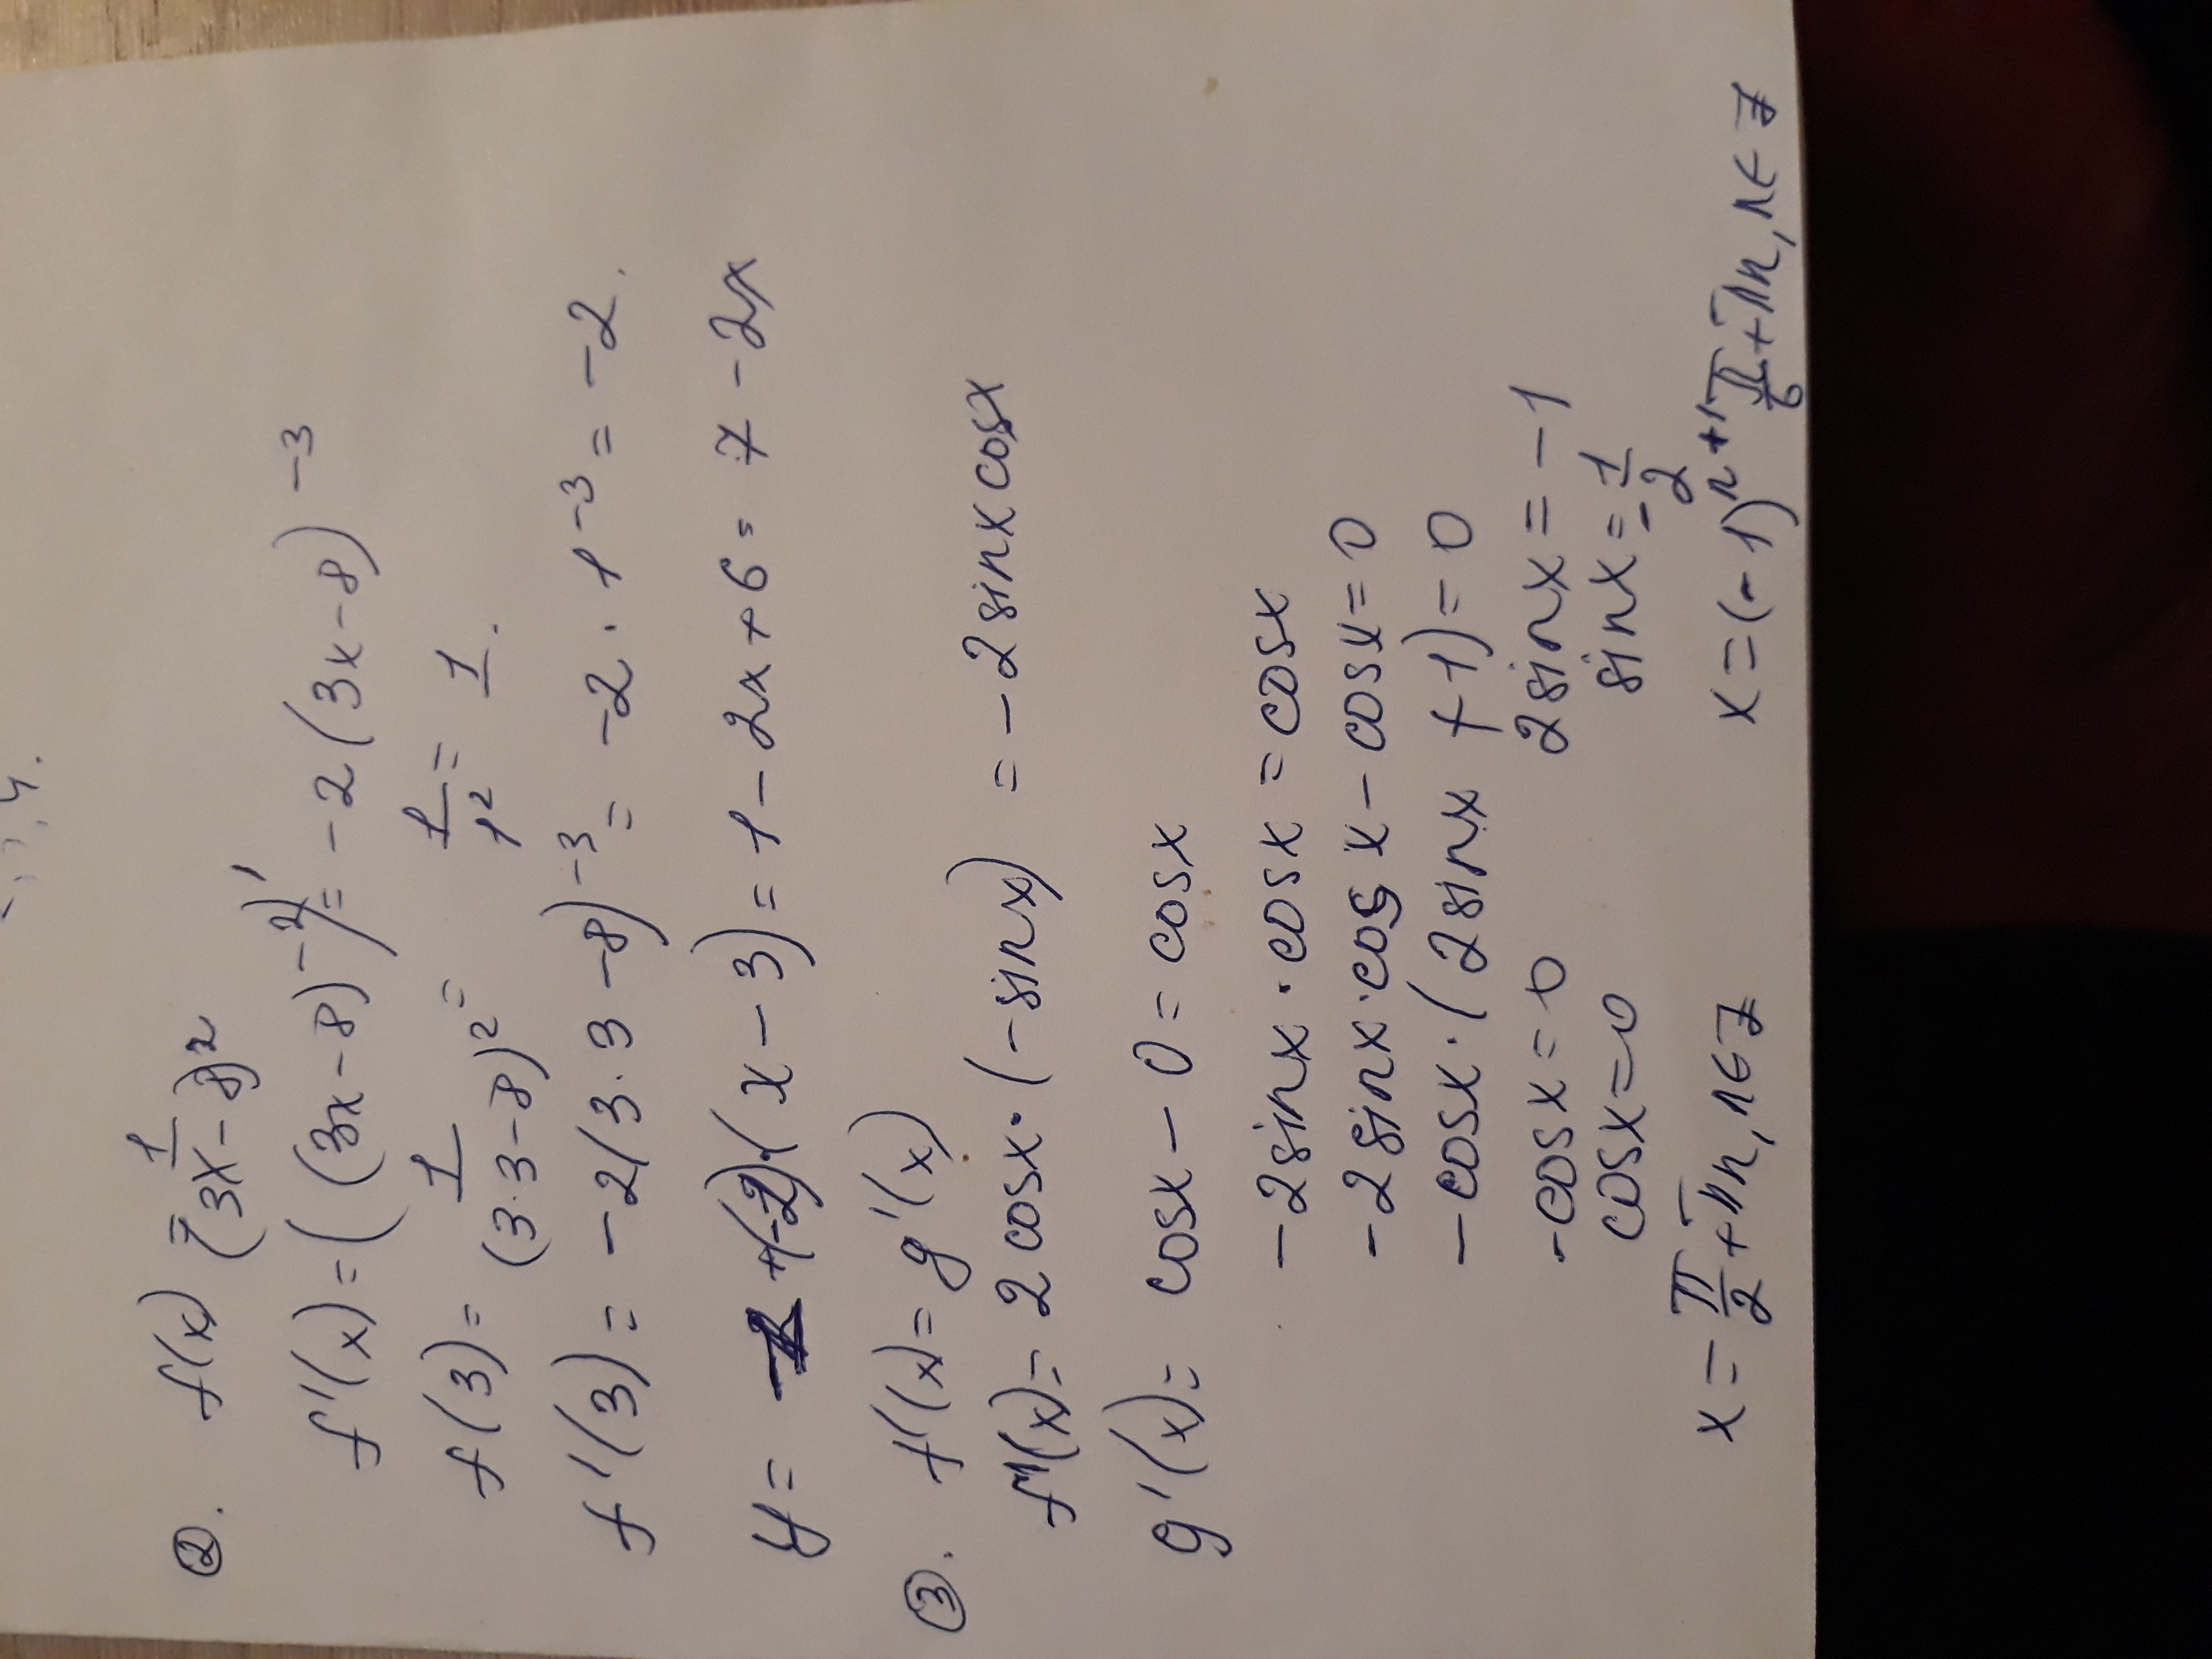 ②. f(x) = 1/(3x-8)²
f'(x) = ((3x-8)⁻²)' = -2(3x-8)⁻³
f(3) = 1/(3·3-8)² = 1/1² = 1.
f'(3) = -2(3·3-8)⁻³ = -2·1⁻³ = -2.
y = +(-2)·(x-3) = 1-2x+6 = 7-2x
③. f'(x) = g'(x)
f'(x) = 2cosx·(-sinx) = -2sinxcosx
g'(x) = cosx-0 = cosx
-2sinx·cosx = cosx
-2sinx·cosx-cosx=0
-cosx·(2sinx+1)=0
-cosx=0 2sinx=-1
cosx=0 sinx=-1/2
x=π/2+πn, n∈Z x=(-1)ⁿ⁺¹π/6+πn, n∈Z